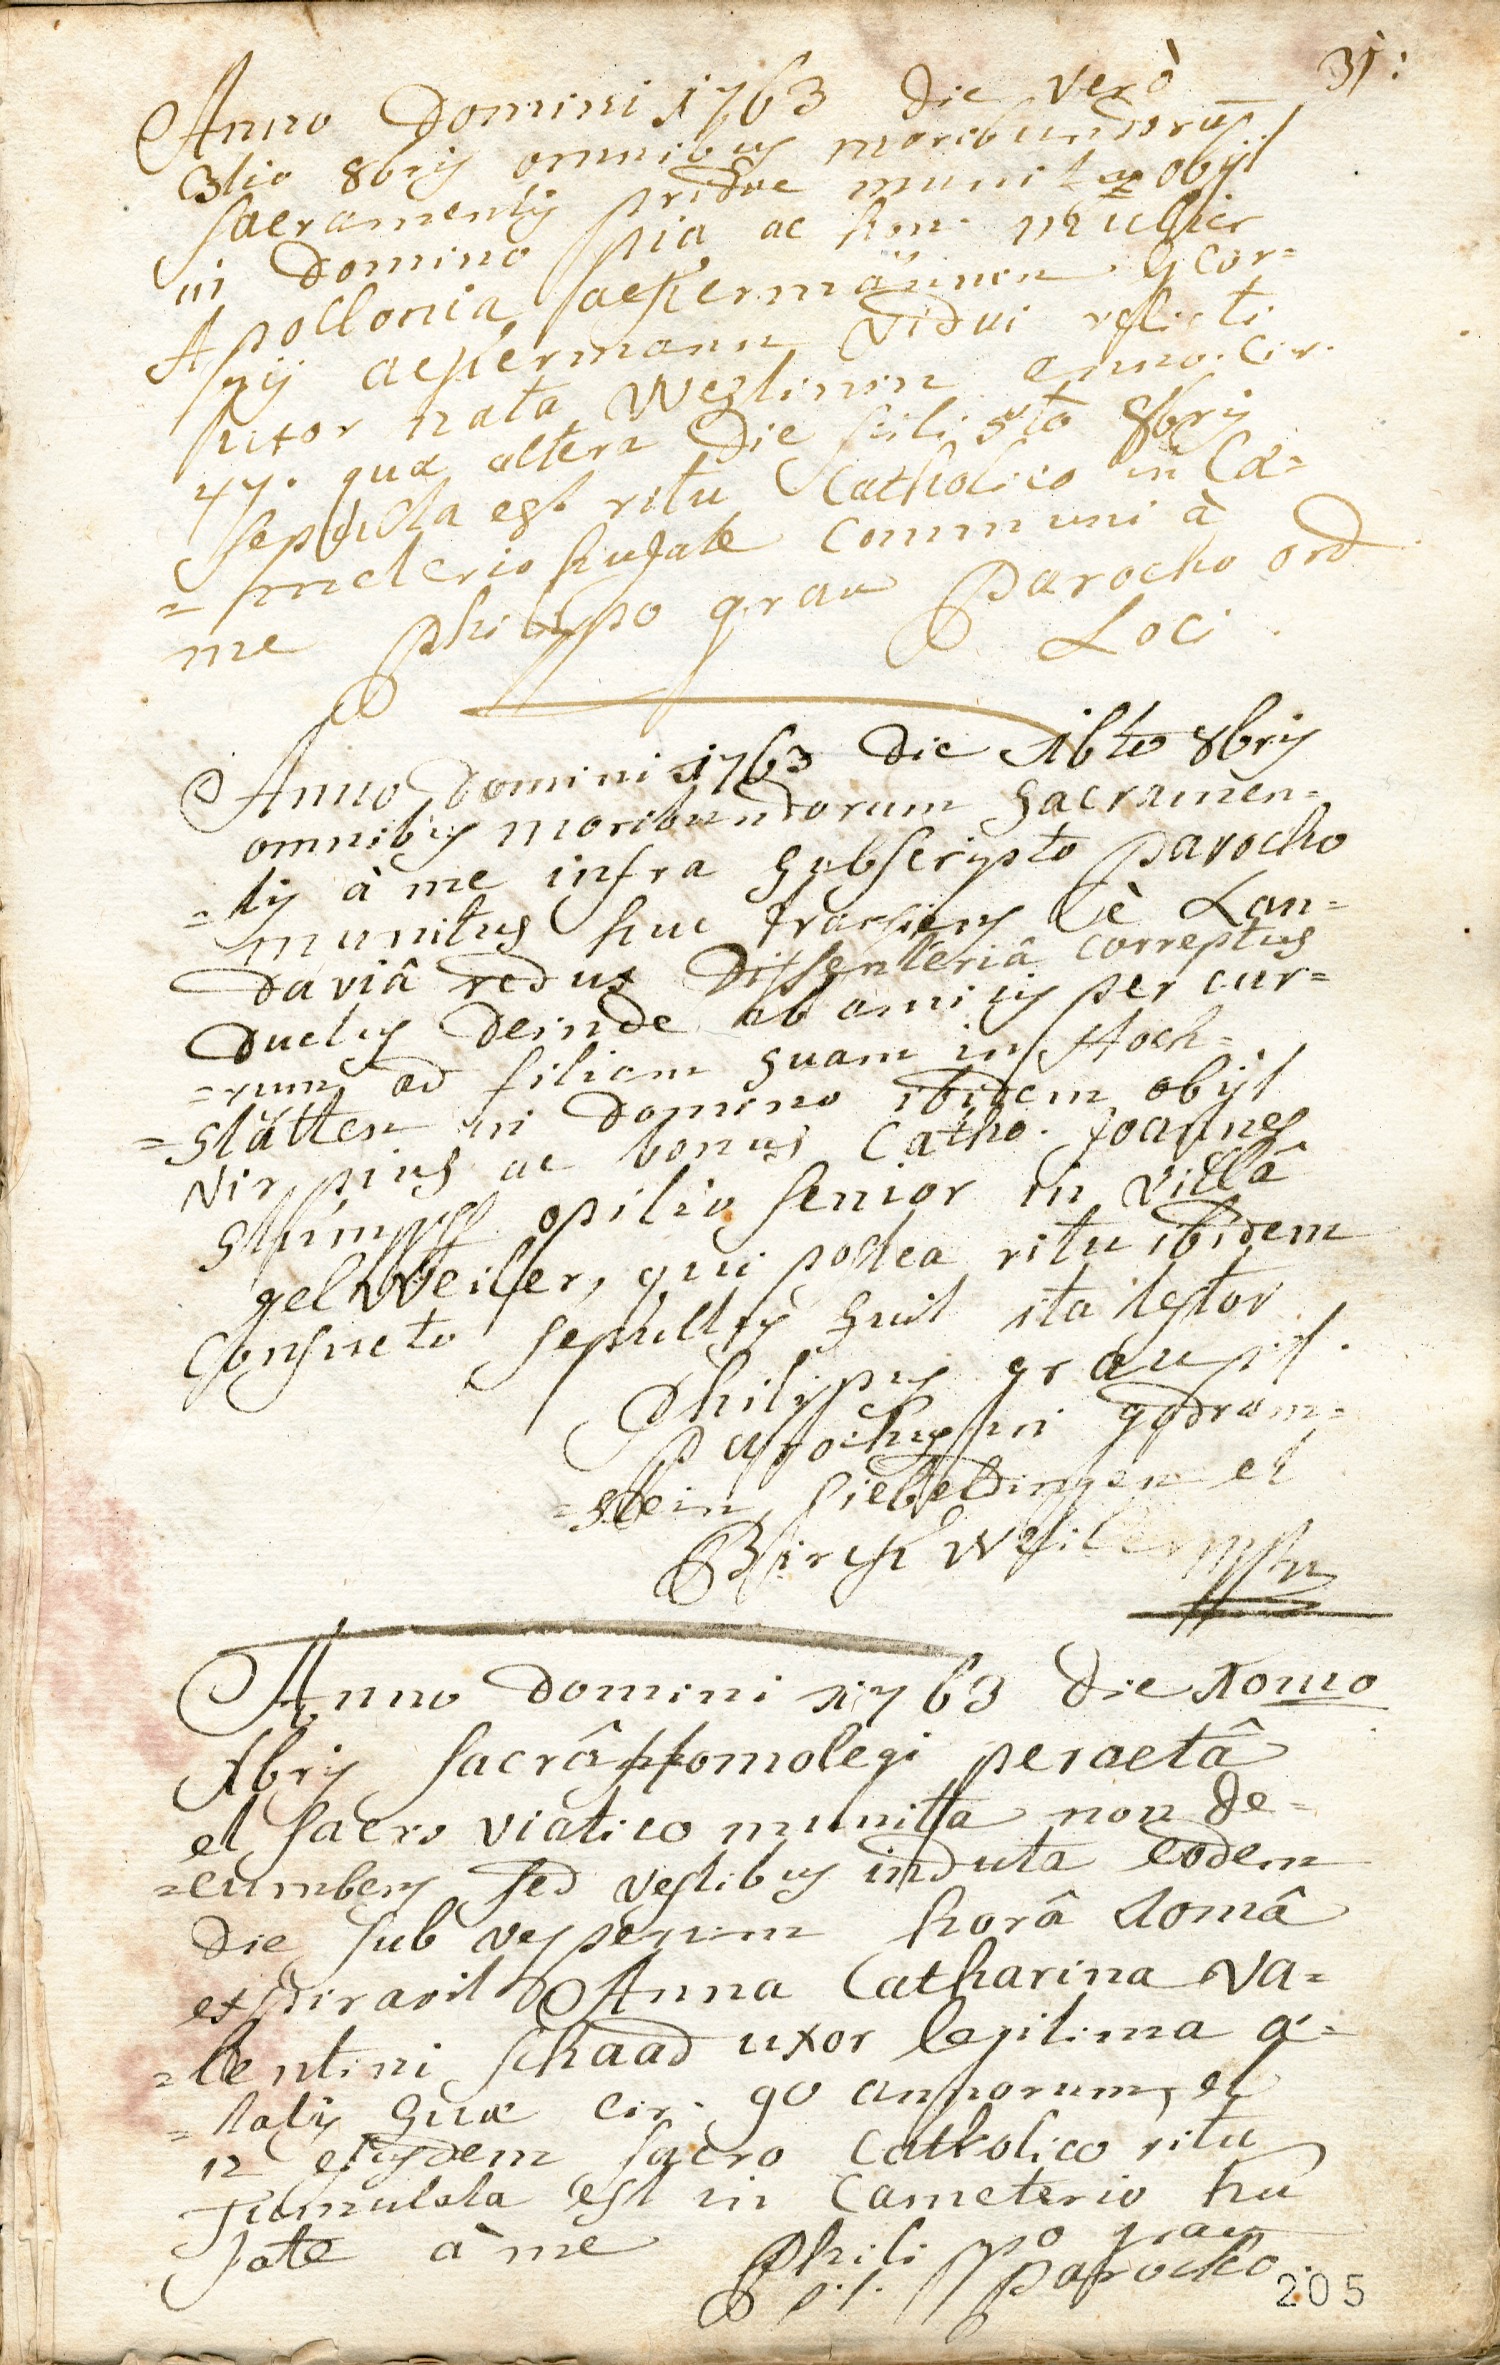 31:
Anno Domini 1763 die verò
3tio 8bris omnibus moribundorū
sacramentis pridie munita obijt
in Domino pia ac hon. mulier
Apollonia ackermännin gcor=
gij ackermann vidui relicti
uxor nata Wezlinin anno. cir.
47. quæ altera die scili 5to 8bris
sepulta est ritu Catholico in Cæ=
=meterio hujate communi à
me Philippo grau Parocho ord
Loci.
Anno Domini 1763 die 16to 8bris
omnibus moribundorum Sacramen=
=tis à me infra Subscripto parocho
munitus huc transiens è Lan=
daviâ redux Dissenteriâ correptus
Ductus Deinde ab amicis per cur=
=rum ad filiam suam in Hoch=
=stätten in Domino ibidem obijt
vir pius ac bonus Catho. Joannes
Stümpff opilio senior in villâ
gelWeiler, qui postea ritu ibidem
Consueto sepultus fuit ita testor
Philippus grau p.t.
Parochus in godram=
=stein, siebeldingen et
BirckWeiler mpria
Anno Domini 1763 die 10mo
Xbris sacrâ Homolegi peractâ
et sacro viatico munita non de=
=cumbens sed vestibus induta eodem
die sub vesperum horâ 10mâ
expiravit Anna Catharina Va=
=lentini schaad uxor legitima æ=
=tatis suæ cir. 90 annorum, et
12 ejusdem sacro Catholico ritu
Tumulata est in Cæmeterio hu
jate à me Philippo grau
p.t. parocho.
205